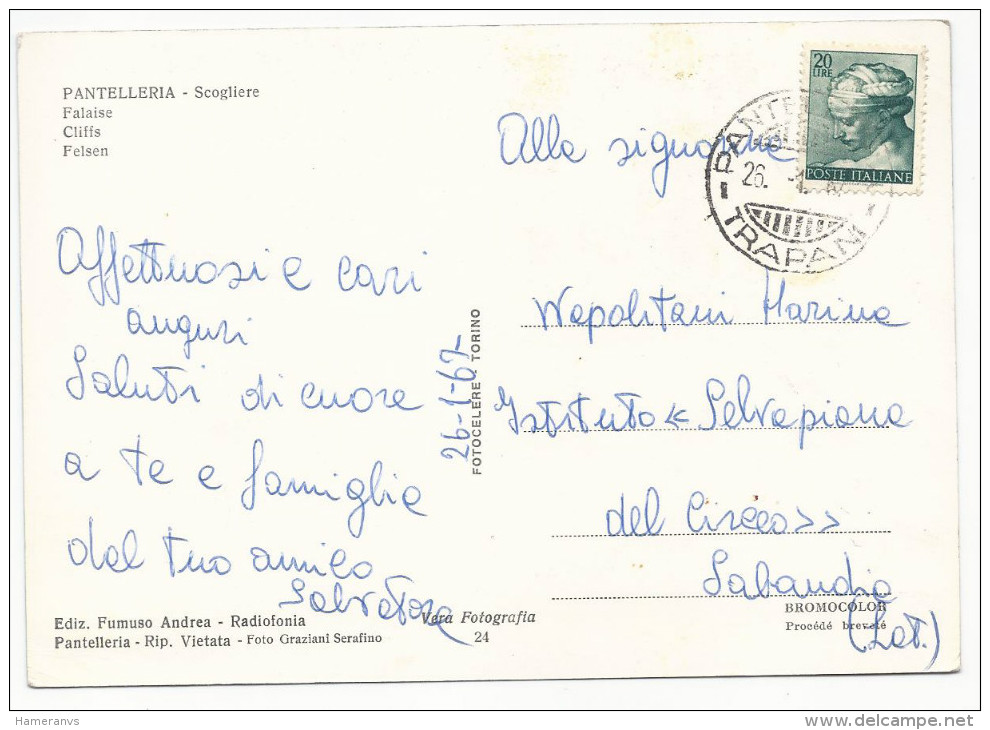 PANTELLERIA - Scogliere
Falaise
Cliffs
Felsen
20
LIRE
POSTE ITALIANE
TRAPANI
26.
Alla signorina
Affettuosi e cari
auguri
Saluti di cuore
a te e famiglia
dal tuo amico
Salvatore
26-1-67
FOTOCELERE - TORINO
Napolitani Marina
Istituto « Selvapiana
del Circeo »
Sabaudia
(Lat.)
Ediz. Fumuso Andrea - Radiofonia
Pantelleria - Rip. Vietata - Foto Graziani Serafino
Vera Fotografia
24
BROMOCOLOR
Procédé breveté
Hameranvs
delcampe.net